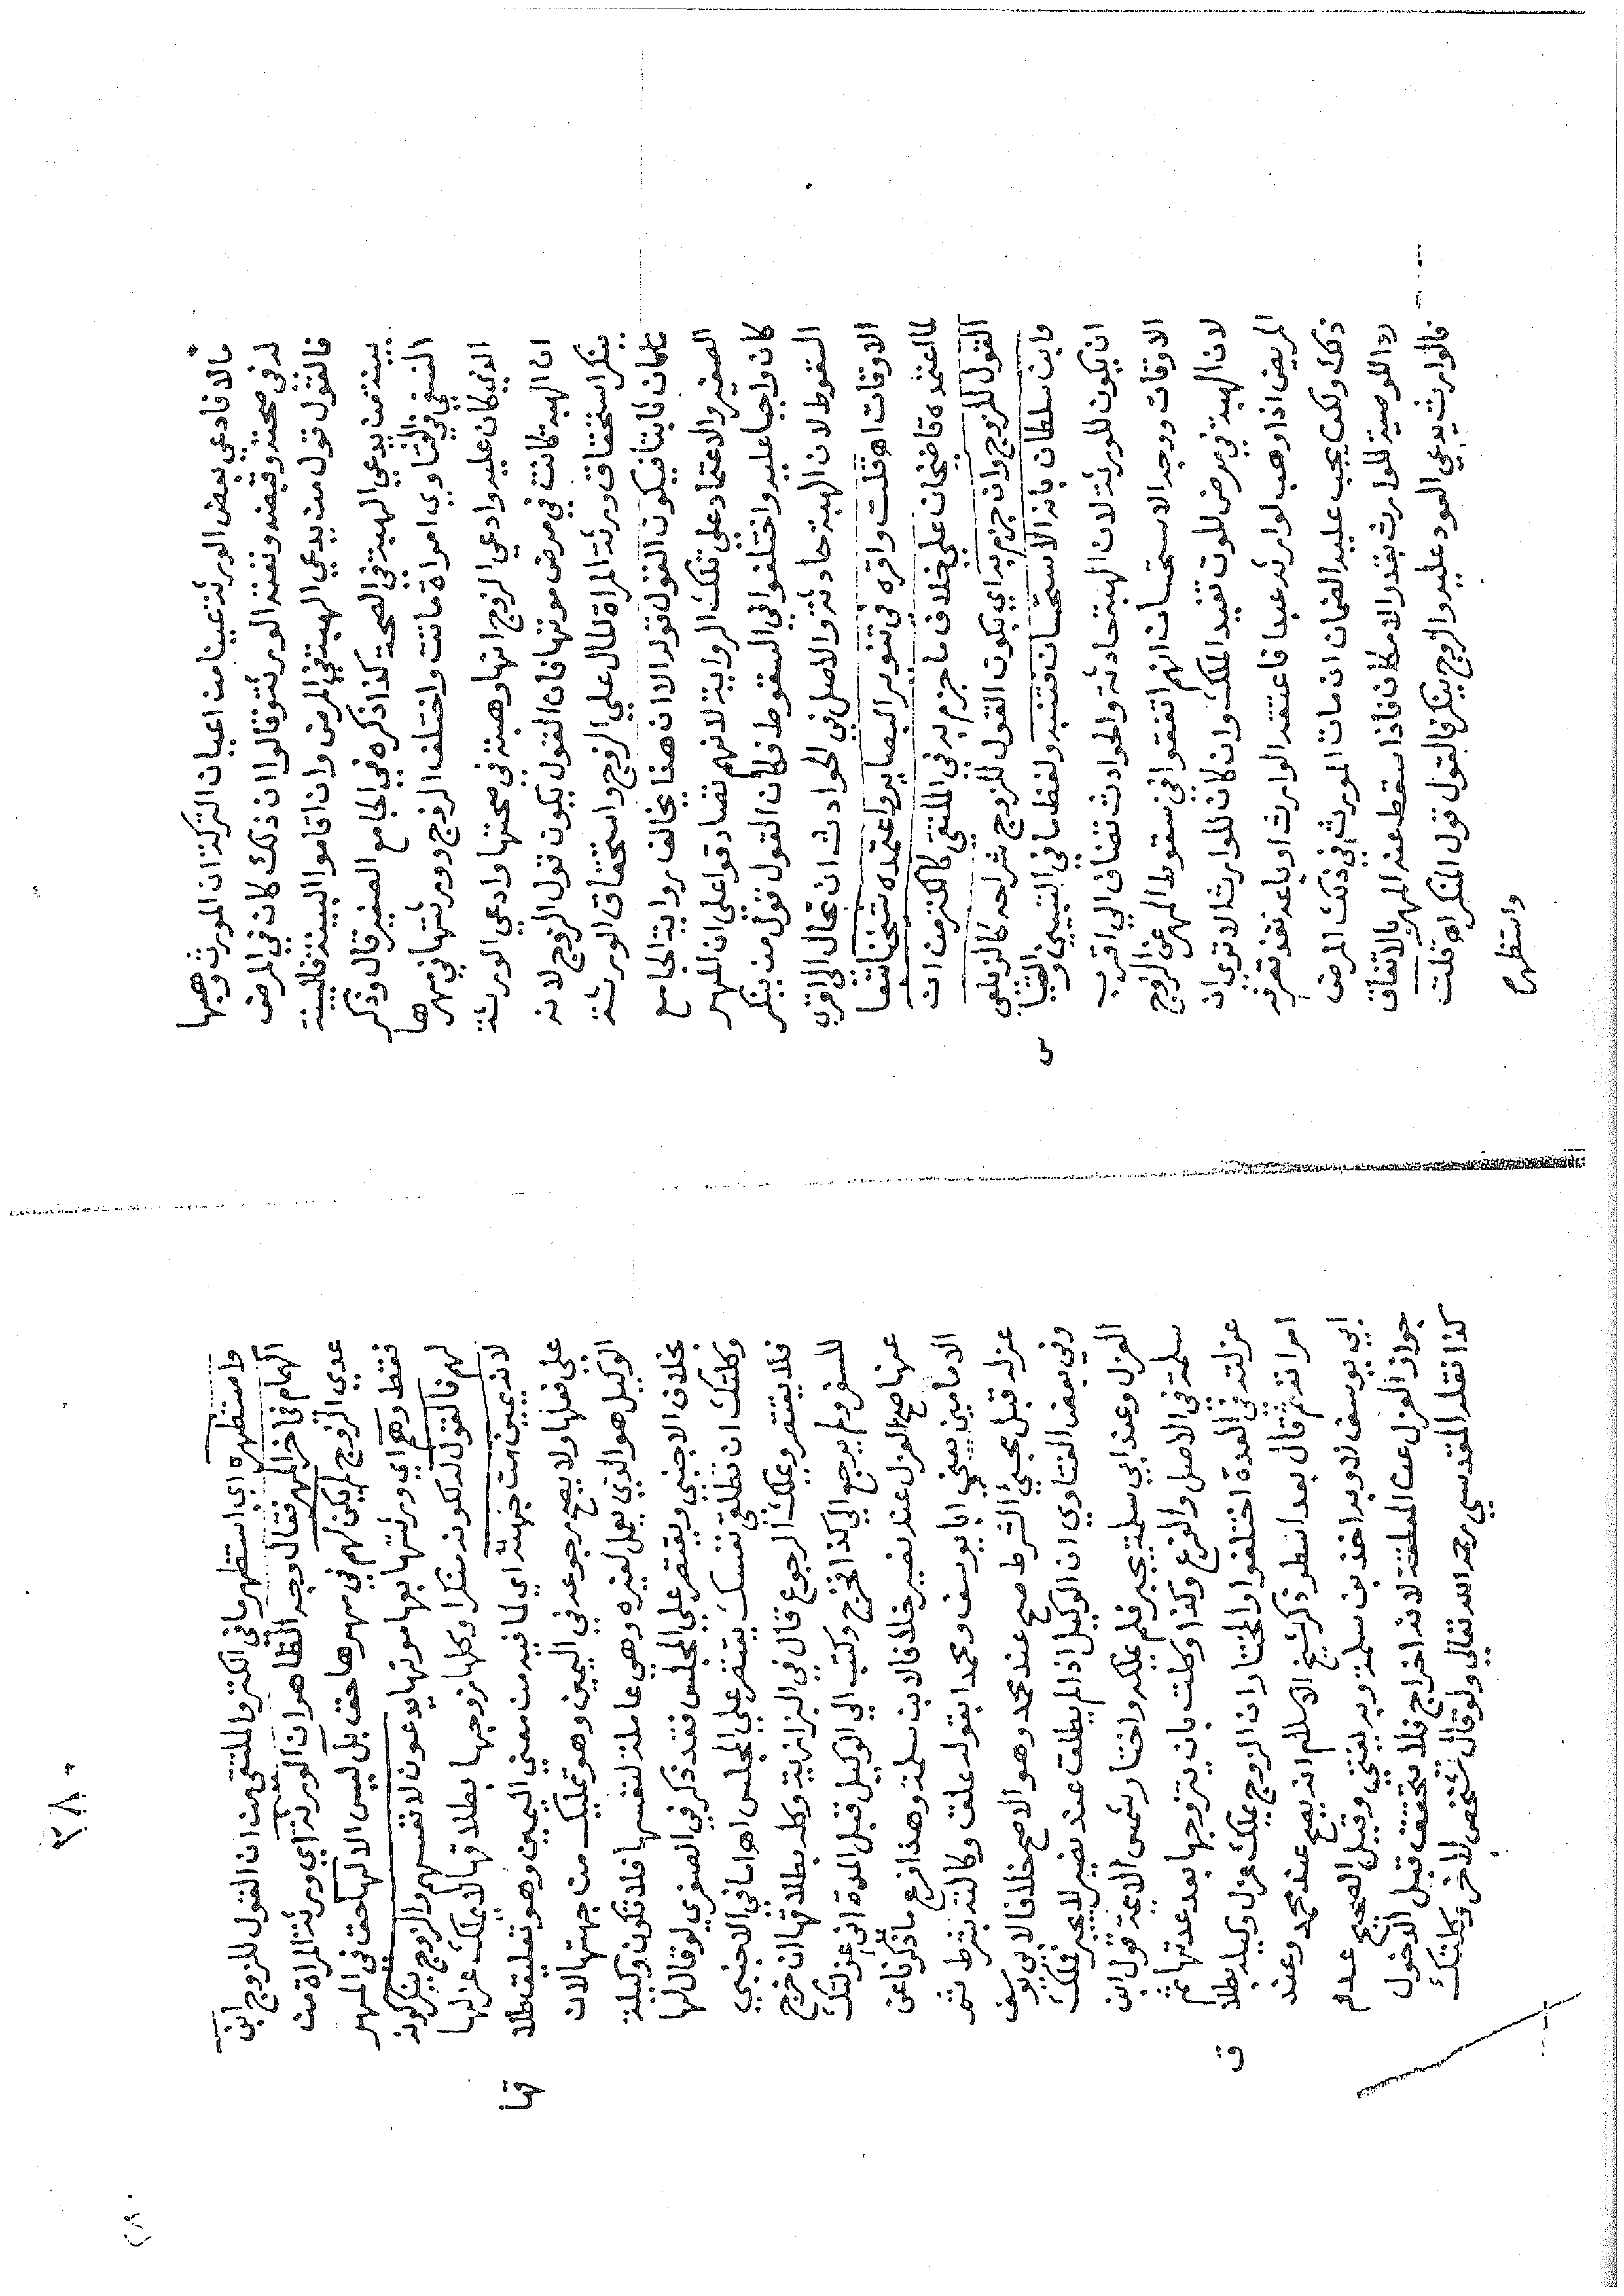 مالا فادعي بعض الورثة عينا من اعيان التركة ان المورث وهبها
له في صحته وقبضه وبقية الورثة قالوا ان ذلك كان في المرض
فالقول قول من يدعي الهبة في المرض وان اقاموا البينة فالبينة
بينة من يدعي الهبة في الصحة كذا ذكره في الجامع الصغير قال وذكر
النسفي في الفتاوي امراة ماتت واختلف الزوج وورثتها في مهرها
الذي كان عليه وادعي الزوج انها وهبته في صحتها وادعي الورثة
ان الهبة كانت في مرض موتها فان القول يكون قول الزوج لانه
ينكر استحقاق ورثة المراة المال علي الزوج واستحقاق الورثة
ماكان ثابتا فيكون القول قوله الا ان هذا يخالف رواية الجامع
الصغير والاعتماد علي تلك الرواية لانهم تصادقوا علي ان المهر
كان واجبا عليه واختلفوا في السقوط فكان القول قول من ينكر
السقوط لان الهبة حادثة والاصل في الحوادث ان تحال الي اقرب
الاوقات اه قلت واقره في تنوير البصاير واعتمده شيخنا تبعا
لما اعتمده قاضيخان علي خلاف ما جزم به في الملتقي كالكنز من ان
القول للزوج وان جزم به اي بكون القول للزوج شراحه كالزيلعي
وابن سلطان بانه الاستحسان فتنبه ولفظ ما في التبيين والقياس
ان يكون للورثة لان الهبة حادثة والحوادث تضاف الي اقرب
الاوقات ووجه الاستحسان انهم اتفقوا في سقوط المهر عن الزوج
لان الهبة في مرض الموت تفيد الملك وان كان للوارث الا تري ان
المريض اذا وهب لوارثه عبدا فاعتقه الوارث او باعه نفذ تصرفه
ذلك ولكن يجب عليه الضمان ان مات المورث في ذلك المرض
ردا للوصية للوارث بقدر الامكان فاذا سقط عنه المهر بالاتفاق
فالوارث يدعي العود عليه والزوج ينكر فالقول قول المنكر اه قلت
واستظهره
٢٨٠
واستظهره اي استظهر ما في الكنز والملتقي من ان القول للزوج ابن
الهمام في اخر المهر فقال وجه الظاهر ان الورثة اي ورثة المراة من
عدي الزوج لم يكن لهم في مهرها حق بل ليس الا لها حق في المهر
فقط وهم اي ورثتها بعد موتها يدعون لانفسهم والزوج ينكر كونه
لهم فالقول له لكونه منكرا وكلها زوجها بطلاقها لا يملك عزلها
لانه يمين من جهته اي لما فيه من معني اليمين وهو تعليق طلاقها
علي فعلها ولا يصح رجوعه في اليمين وهو تمليك من جهتها لان
الوكيل هو الذي يعمل لغيره وهي عاملة لنفسها فلا تكون وكيلة
بخلاف الاجنبي ويقتصر علي المجلس فقد ذكر في الصغري لو قال لها
وكلتك ان تطلقي نفسك يقتصر علي المجلس اه اما في الاجنبي
فلا يقتصر ويملك الرجوع قال في البزازية وكله بطلاقها ان خرج
للسفر ولم يرجع الي كذا فخرج وكتب الي الوكيل قبل المدة اني عزلتك
عنها صح العزل عند نصير خلافا لابن سلمة وهذا فرع ما ذكرنا عن
الامامين يعني ابا يوسف ومحمدا بقوله علق وكالته بشرط ثم
عزله قبل مجيئ الشرط صح عند محمد وهو الاصح خلافا لابي يوسف
وفي بعض الفتاوي ان الوكيل اذا لم يطلق عند نصير لا يجبر فملك
العزل وعند ابي سلمة يجبر فلم يملكه واختار شمس الايمة قول ابن
سلمة في الاصل والفرع وكذا وكلت بان يتزوجها بعد عدتها ثم
عزلته في العدة اختلفوا والمختار ان الزوج يملك عزل وكيله بطلاق
امراته ثم قال بعد اسطر وذكر شيخ الاسلام انه يصح عند محمد وعند
ابي يوسف لا وبه اخذ بن سلمة وبه يفتي وقيل الصحيح عدم
جواز العزل عن المعلقة لانه اخراج فلا يتحقق قبل الدخول
كذا نقله المقدسي رحمه الله تعالي ولو قال شخص لاخر وكلتك